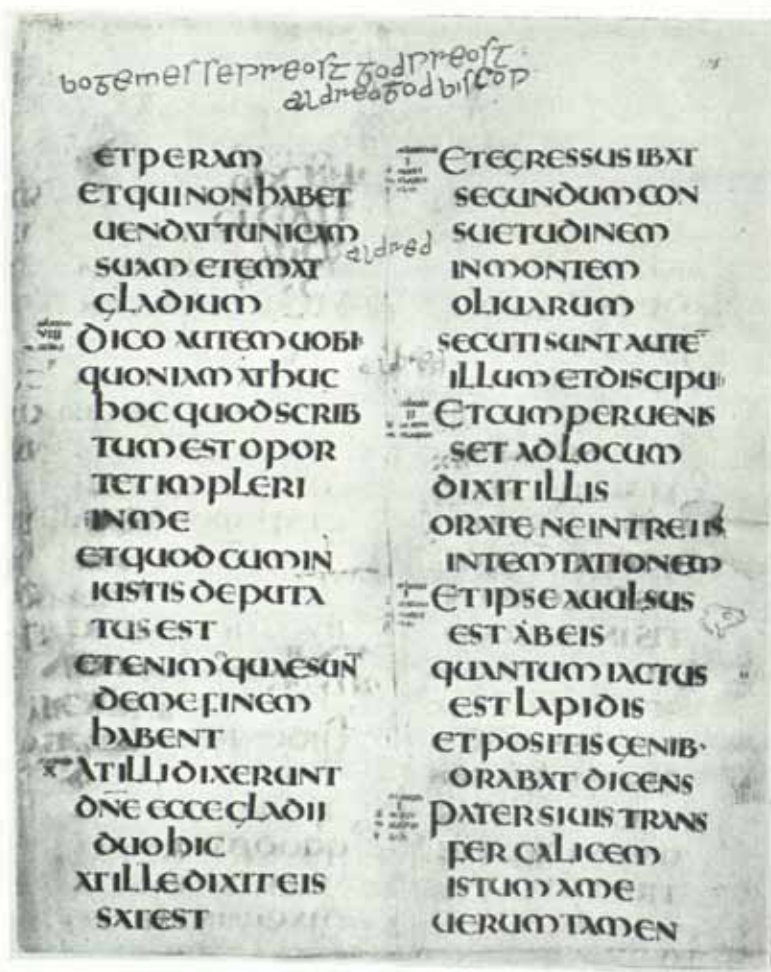 boge messepreost god preost
aldred god biscop
ET PERAM
ET QUI NON HABET
UENDAT TUNICAM
SUAM ET EMAT
GLADIUM
DICO AUTEM UOBIS
QUONIAM ATHUC
HOC QUOD SCRIB
TUM EST OPOR
TET IMPLERI
IN ME
ET QUOD CUM IN
IUSTIS DEPUTA
TUS EST
ETENIM QUAE SUNT
DE ME FINEM
HABENT
AT ILLI DIXERUNT
DNE ECCE GLADII
DUO HIC
AT ILLE DIXIT EIS
SAT EST
aldred
ET EGRESSUS IBAT
SECUNDUM CON
SUETUDINEM
IN MONTEM
OLIUARUM
SECUTI SUNT AUTE̅
ILLUM ET DISCIPULI
ET CUM PERUENIS
SET AD LOCUM
DIXIT ILLIS
ORATE NE INTRETIS
IN TEMTATIONEM
ET IPSE AUULSUS
EST AB EIS
QUANTUM IACTUS
EST LAPIDIS
ET POSITIS GENIB·
ORABAT DICENS
PATER SI UIS TRANS
FER CALICEM
ISTUM A ME
UERUM TAMEN